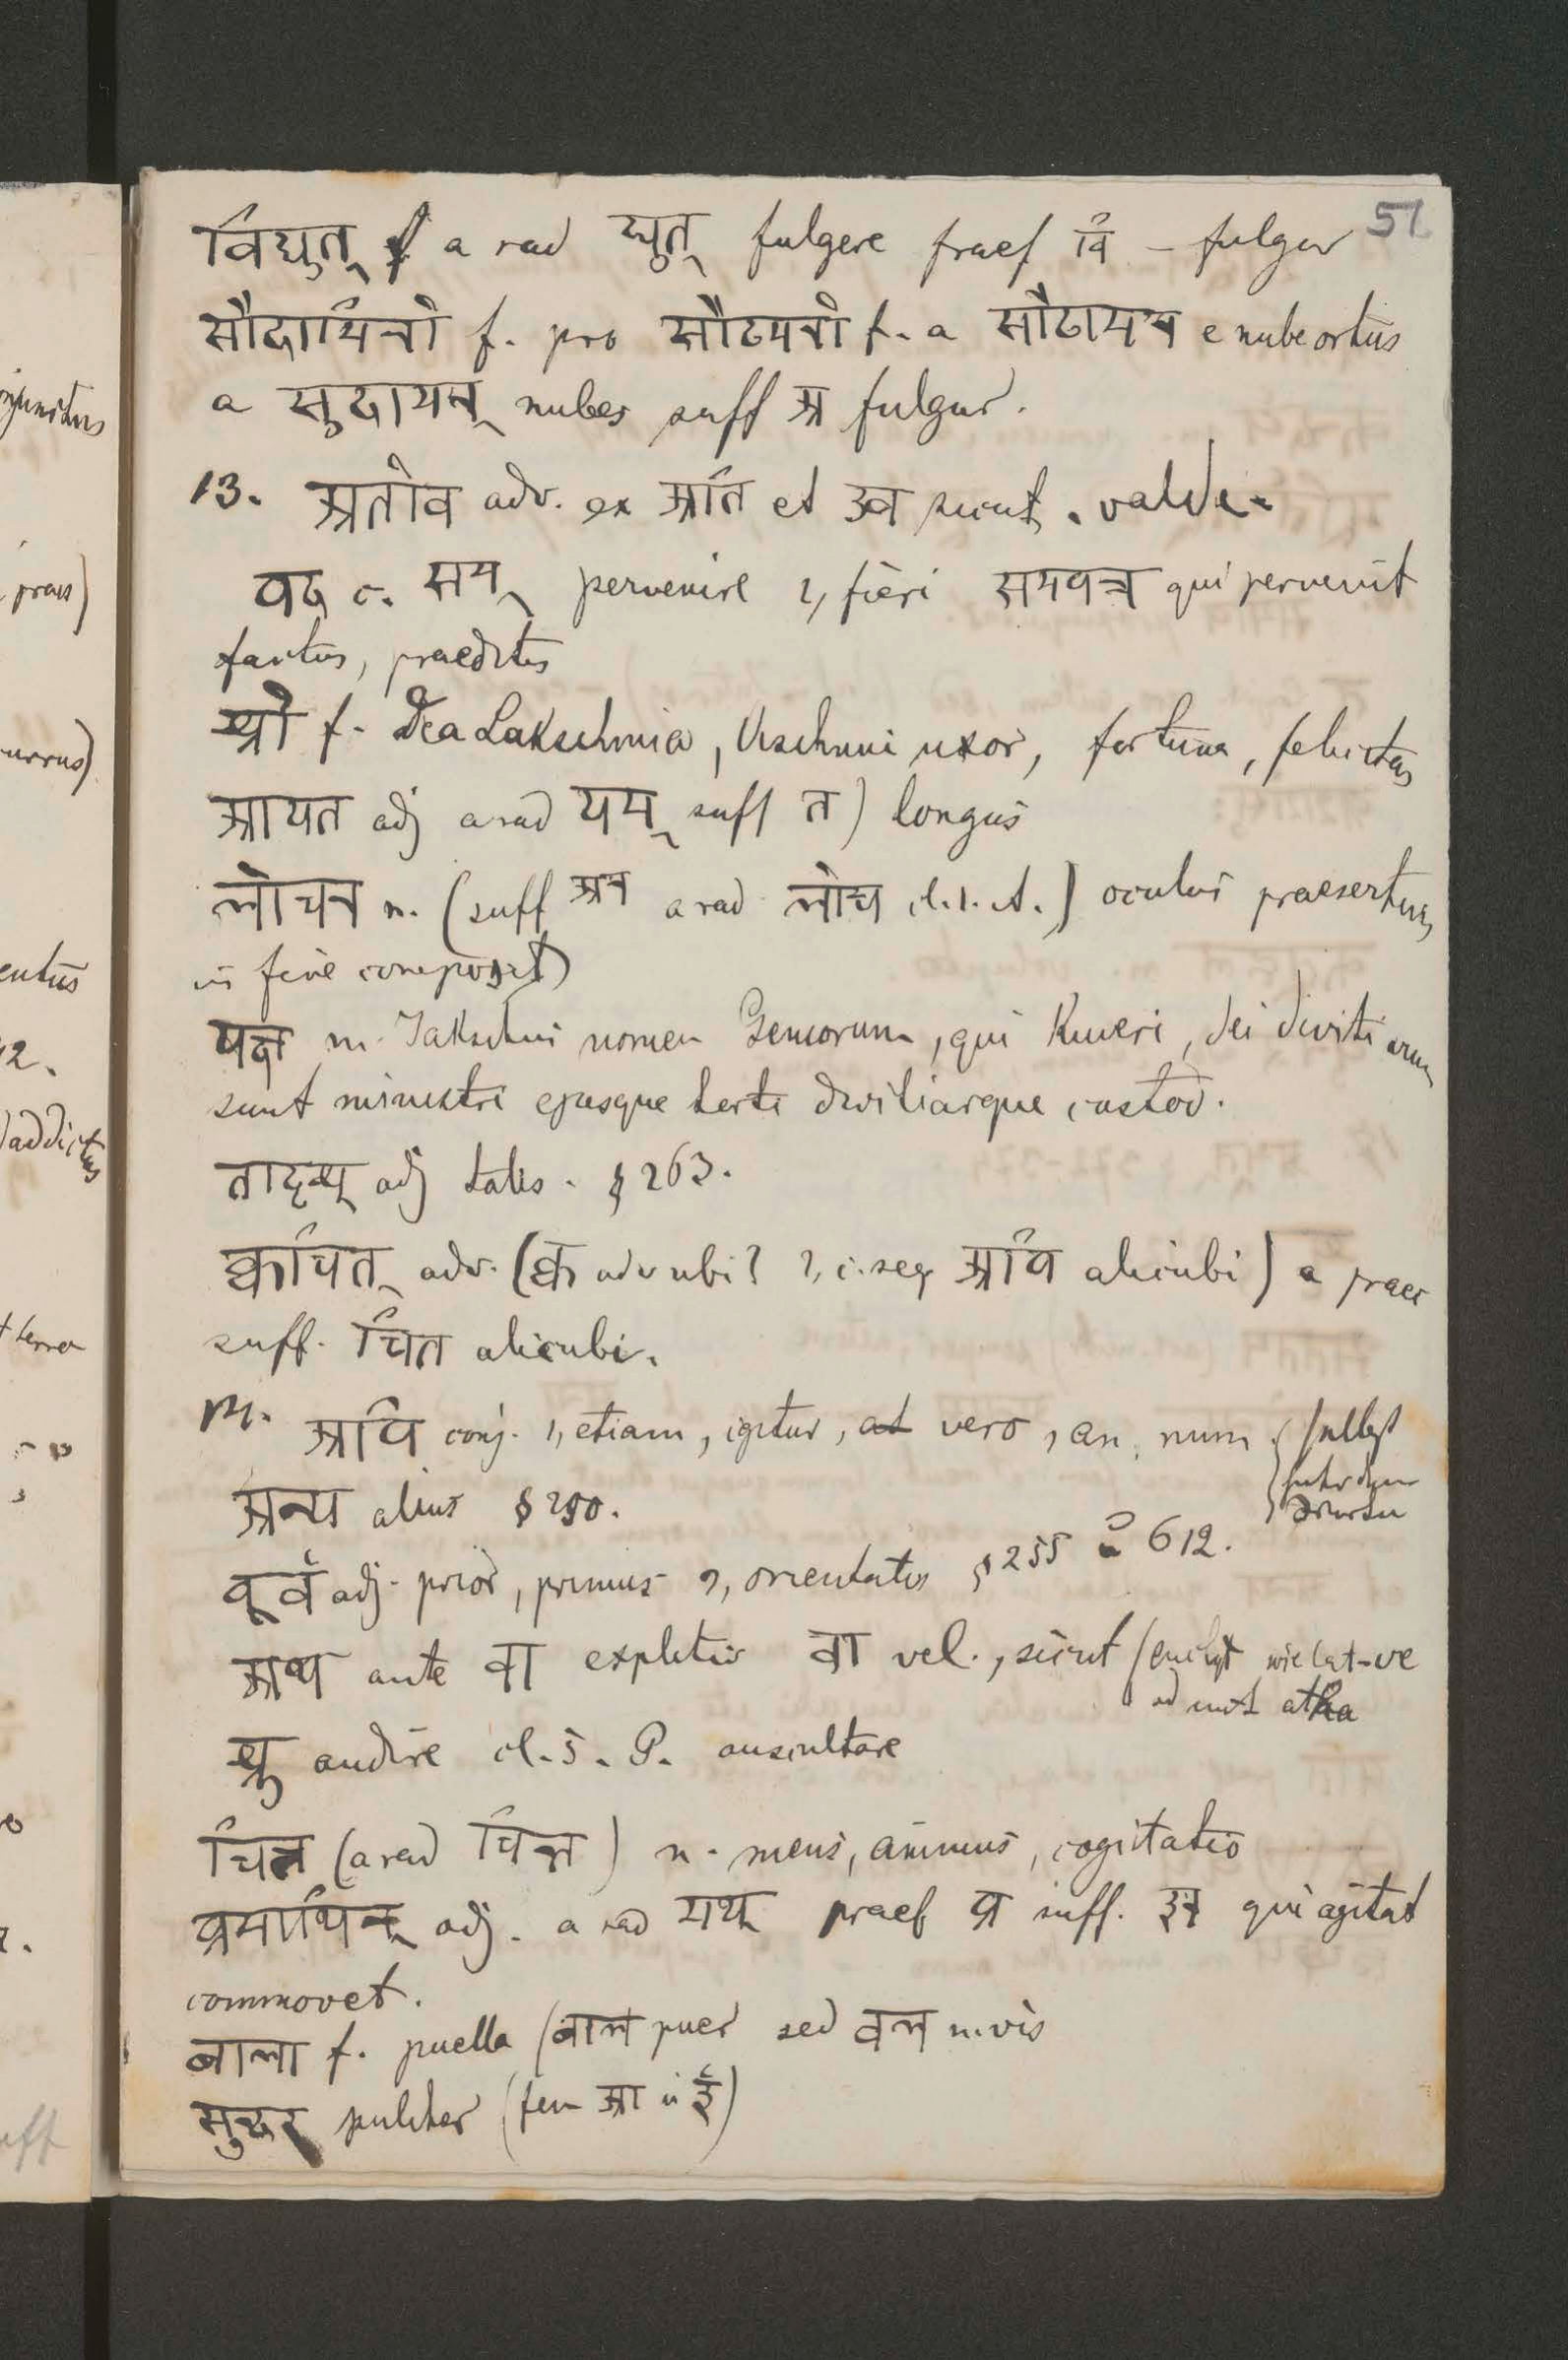 51
विद्युत् f a rad द्युत् fulgere praef वि – fulgur
सौदामिनी f. pro सौदामनी f. a सौदामन e nube ortus
a सुदामन् nubes suff अ fulgur.
13. अतीव adv. ex अति et इव sicut. valde.
पद c. सम् pervenire 2, fieri सम्पन्न qui pervenit
factus, praeditus
श्री f. Dea Lakschmia, Vischnui uxor, fortuna, felicitas
आयत adj a rad यम् suff त) longus
लोचन n. (suff अन a rad लोच cl. 1. A.) oculus praesertim
in fine composit)
यक्ष m. Jakschus nomen Geniorum, qui Kuveri, dei divitiarum
sunt ministri ejusque horti divitiarque custod.
तादृश् adj talis. § 263.
क्वचित् adv. (क्व adv ubi? 2, c. seq अपि alicubi) a praec
suff. चित alicubi.
14. अपि conj. 1, etiam, igitur, at vero, an, num
अन्य alius
पूर्व adj. prior, primus 2, orientalis § 255 612.
अथ ante वा expletiv वा vel., sicut (enclyt wie lat -ve
atha
श्रु audire cl. 5. P. auscultare
चित्त (a rad चिन्त) n. mens, animus, cogitatio
प्रमाथिन् adj. a rad मथ् praef प्र suff. इन् qui agitat
commovet.
बाला f. puella (बाल puer sed बल n. vis
सुन्दर pulcher (fem आ ई)